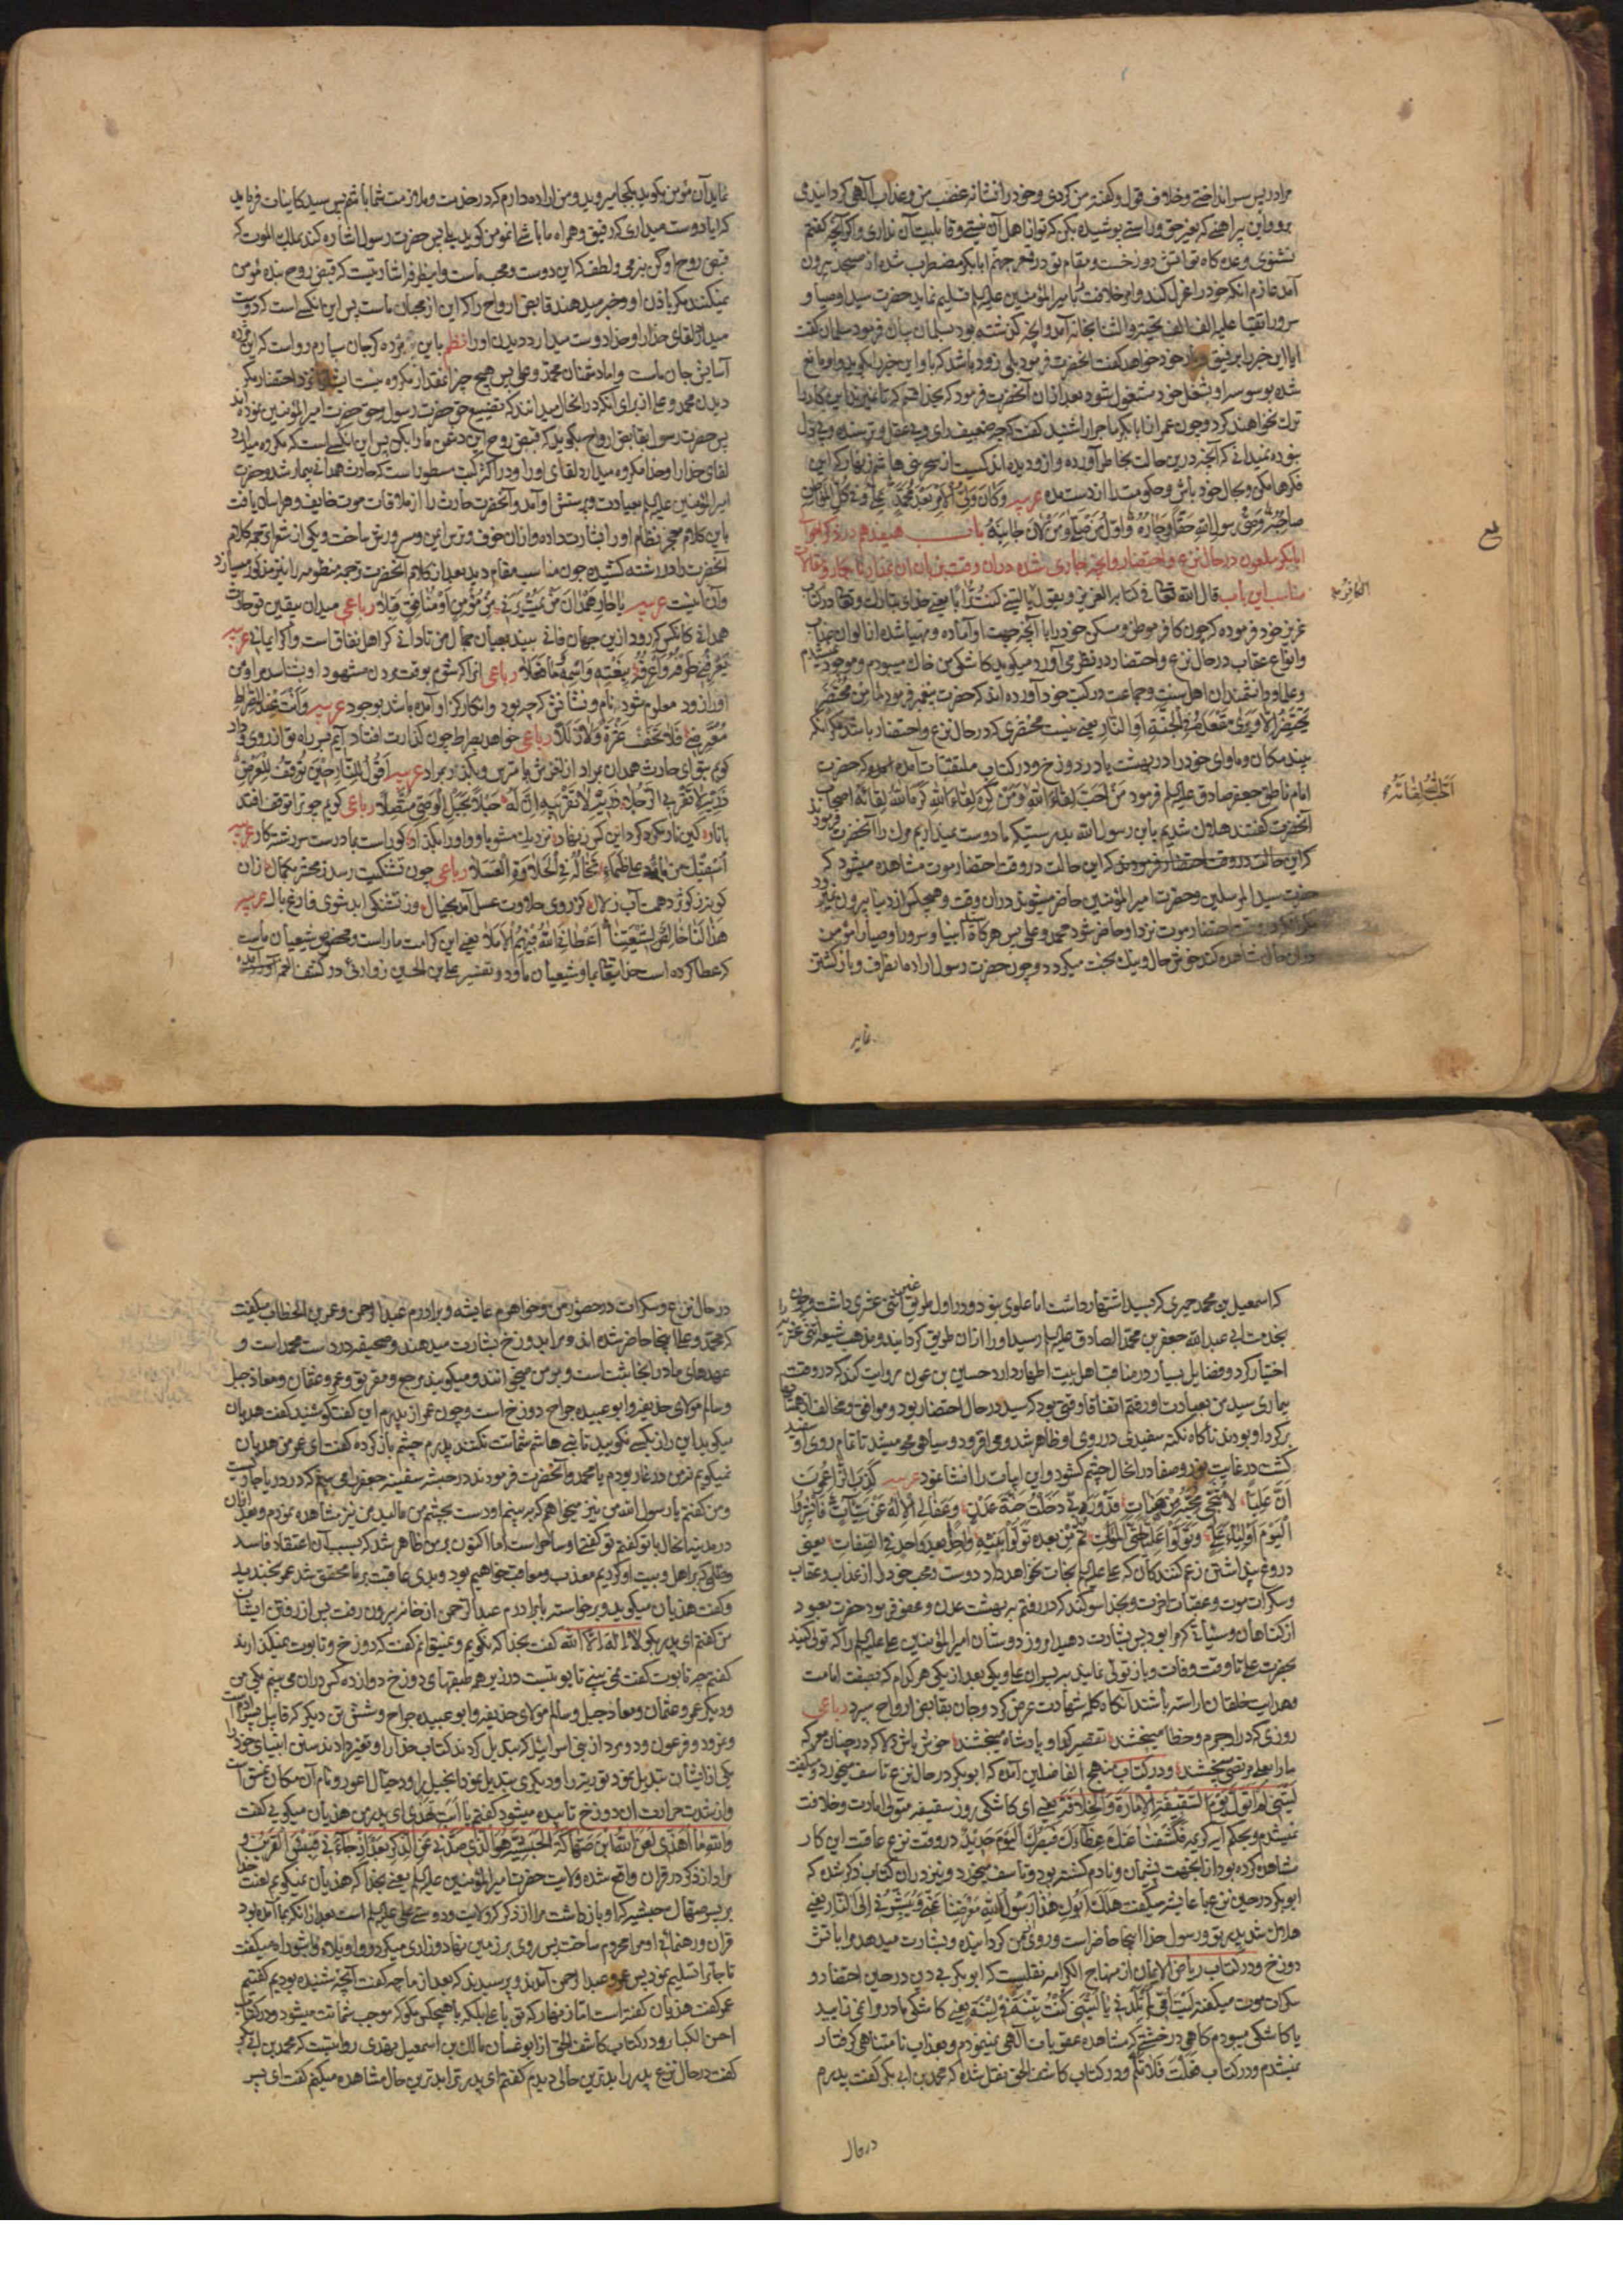 مرا در پس سر انداختی و خلاف قول و گفته من کردی و خود را نشانه غضب من و عذاب الهی گردانیدی
برو و این پیراهنی که بغیر حق و راستی پوشیده بکن که تو از اهل آن نیستی و قابلیت آن نداری و اگر آنچه گفتم
نشنوی وعده گاه تو آتش دوزخست و مقام تو در قعر جهنم ابابکر مضطرب شده از مسجد بیرون
آمد عازم آنکه خود را عزل کند و امر خلافت با میر المؤمنین علیه السلم تسلیم نماید حضرت سید اوصیا و
سرور اتقیا علیه الف الف تحیة و الثنا بخانه آمد و آنچه گذشته بود بسلمان بیان فرمود سلمان گفت
ایا این خبر را برفیق و یار خود خواهد گفت آنحضرت فرمود بلی زود باشد که با او این خبر را بگوید و او مانع
شده بوسوسه او بشغل خود مشغول شود بعد از آن آنحضرت فرمود که بخدا قسم که تا نمیرند این کار را
ترک نخواهند کرد و چون عمر از ابابکر ماجرا را شنید گفت که چه ضعیف رای و بی عقل و ترسنده و بی دل
بوده نمیدانی که آنچه درین حالت بخاطر آورده و ازو دیده اندکیست از سحر بنی هاشم زنهار که این
فکرها مکن و بحال خود باش و حکومت را از دست مده عربیه وکان ولی الامر بعد محمد علی و فی کل المواطن
صاحبه وصی رسول الله حقا و جاره و اول من صلی و من لان جانبه باب هفدهم در ذکر احوال
ابابکر ملعون در حال نزع و احتضار و آنچه جاری شده در آن وقت بزبان آن غدار نابکار و مقالات
مناسب این باب قال الله تعالی فی کتابه العزیز و یقول یا لیتنی کنت ترابا یعنی خدای تبارک و تعالی در کتاب
الکافر
عزیز خود فرموده که چون کافر موطن و مسکن خود را با آنچه جهت او آماده و مهیا شده از الوان عذاب
و انواع عقاب در حال نزع و احتضار در نظر می آورد میگوید کاشکی من خاک میبودم و موجود نمیشدم
و علما و دانشمندان اهل سنت و جماعت در کتب خود آورده اند که حضرت پیغمبر فرمود ما من محتضر
یحتضر الا و یری مقعده فی الجنة او النار یعنی نیست محتضری که در حال نزع و احتضار باشد مگر آنکه
بیند مکان و ماوای خود را در بهشت یا در دوزخ و در کتاب ملتقتات آمده که حضرت
امام ناطق جعفر صادق علیه السلم فرمود من احب لقاء الله و من کره لقاء الله کره الله لقائه اصحاب
احب الله لقائه
آنحضرت گفتند هلاک شدیم یابن رسول الله بدرستیکه ما دوست نمیداریم مرک را آنحضرت فرمود
که این حالت در وقت احتضار مرد مومن که این حالت در وقت احتضار موت مشاهده میشود که
حضرت سید المرسلین و حضرت امیر المؤمنین حاضر میشوند در آن وقت و هیچکس از دنیا بیرون نمیرود
احتضار موت نزد او حاضر شود محمد و علی پس هرگاه انبیا و سرور اوصیا را مؤمن
در آن حال مشاهده کند خوش حال و نیک بخت میگردد و چون حضرت رسول اراده انصراف و بازگشتن
نماید
نماید آن مؤمن بگوید بکجا میروید و من اراده دارم که در خدمت و ملازمت شما باشم پس سید کاینات فرماید
که ایا دوست میداری که رفیق و همراه ما باشی مؤمن گوید بلی پس حضرت رسول اشاره کند بملک الموت که
قبض روح او کن بنرمی و لطف که این دوست و محب ماست
نمیکنند مگر باذن او و خبر میدهند قابض ارواح را که این از محبان ماست پس این آنکسی است که دوست
میدارد لقای خدا را و خدا دوست میدارد دیدن او را نظم
آسایش جان ماست و اما دشمنان محمد و علی پس هیچ چیز آنقدر مکروه نیست ایشان را نزد احتضار مگر
دیدن محمد و علی از برای آنکه در آنحال میدانند که تضییع حق حضرت رسول و حق حضرت امیر المؤمنین نموده اند
پس حضرت رسول بقابض ارواح میگوید که قبض روح این دشمن ما را بکن پس این آنکسی است که مکروه میدارد
لقای خدا را و خدا مکروه میدارد لقای او را و در اکثر کتب مسطور است که حارث همدانی بیمار شد و حضرت
امیر المؤمنین علیه السلم بعیادت و پرسش او آمد و آنحضرت حارث را از ملاقات موت خایف و هراسان یافت
باین کلام معجز نظام او را بشارت داده و از آن خوف و ترس ایمن و مسرورش ساخت و یکی از شعرا ترجمه کلام
آنحضرت را در رشته کشیده چون مناسب مقام دید بعد از کلام آنحضرت ترجمه منظومه را نیز مذکور میسازد
و آن اینست عربیه یا حار همدان من یمت یرنی من مؤمن او منافق قبلا رباعی میدان بیقین تو حارث
همدانی کانکس که رود ازین جهان فانی بیند بعیان جمال من تا دانی گر اهل نفاق است و گر ایمانی عربیه
یعرفنی طرفه و اعرفه بنعته و اسمه و ما فعلا رباعی آنرا که شوم بوقت مردن مشهود او شناسد مرا و من
او را زود معلوم شود نام و نشانش که چه بود و آنکار کزو آمده باشد بوجود عربیه وانت عند الصراط
معترضی فلا تخف عثرة ولا زللا رباعی خواهد بصراط چون گذارت افتاد آیم بسر راه تو از روی وداد
گویم بتو ای حارث همدان مراد از لغزش پا مترس و بگذر بمراد عربیه اقول للنار حین توقف للعرض
ذریه لا تقربی الرجلا ذریه لا تقربیه ان له حبلا بحبل الوصی متصلا رباعی گویم چو ترا توقف افتد
با نار کین نار مکرد گرد این کس زنهار نزدیک مشو باو و او را بگذار کو راست بما درست سررشته کار عربیه
اسقیک من بارد علی ظماء تخاله فی الحلاوة العسلا رباعی چون تشنگیت رسد ز محشر بکمال زان
کوثر ز کوثرت دهمت آب زلال کز روی حلاوت عسل آید بخیال وز تشنگی ابد شوی فارغ بال عربیه
هذا لنا خالصا لشیعتنا اعطانی الله فیهم الاملا یعنی این کرامت ما راست مخصوص شیعیان ماست
که عطا کرده است خدایتعالی بما و شیعیان ما و در تفسیر علی بن الحسین زوارئی در کشف الغمه آورده
که اسمعیل بن محمد حمیری که بسید اشتهار داشت اما علوی نبود و در اول طریق غیر اثنی عشری داشت و چون
بخدمت ابی عبد الله جعفر بن محمد الصادق علیه السلم رسید او را از آن طریق گردانید و مذهب شیعه اثنی عشریه را
اختیار کرد و فضایل بسیار در مناقب اهل بیت اطهار دارد حسین بن عون روایت کند که در وقت
بیماری سید من بعیادت او رفتم اتفاقا وقتی بود که سید در حال احتضار بود و موافق و مخالف از همسایها
بر گرد او بودند ناگاه نکته سفیدی در روی او ظاهر شد و می افزود و سیاهی محو میشد تا تمام روی او سفید
گشت در غایت نور و صفا در آنحال چشم گشود و این ابیات را انشا نمود عربیه کذب الزاعمون
ان علیا لا ینجی محبه من هنات قد و ربی دخلت جنة عدن و عفا لی الاله عن سیئات فابشروا
الیوم اولیاء علی و تولوا علیا حتی الممات ثم من بعده تولوا بنیه واحدا بعد واحد فی الصفات یعنی
دروغ پنداشتن زعم کنندگان که علی علیه السلم نجات نخواهد داد دوست و محب خود را از عذاب و عقاب
و سکرات موت و عقبات آخرت و بخدا سوگند که در رفتم به بهشت عدن و عفو فرمود حضرت معبود
از گناهان و سیئات که مرا بود پس بشارت دهید امروز دوستان امیر المؤمنین علی علیه السلم را که تولی کنید
بحضرت علی تا وقت وفات و باز تولی نمایند به پسران علی و یکی بعد از یکی هر کدام که بصفت امامت
و هدایت خلقان آراسته باشند آنگاه کلمه شهادت عرض کرد و جان بقابض ارواح سپرد رباعی
روزی که در او جرم و خطا میبخشند تقصیر گدا و پادشاه میبخشند خوش باش دلا که در چنان معرکه
ما را بعلی مرتضی میبخشند و در کتاب منهج الفاضلین آمده که ابوبکر در حال نزع تاسف میخورد و میگفت
لیتنی لم اتول یوم السقیفة الامارة و الخلافة یعنی ای کاشکی روز سقیفه متولی امارت و خلافت
نمیشدم و بحکم آیه کریمه فکشفنا عنک غطاءک فبصرک الیوم حدید در وقت نزع عاقبت این کار
مشاهده کرده بود از آنجهت پشیمان و نادم گشته بود و تاسف میخورد و نیز در آن کتاب ذکر شده که
ابوبکر در حین نزع با عایشه میگفت هلک ابوک هذا رسول الله معرضا عنی و یبشرنی الی النار یعنی
هلاک شد پدر تو و رسول خدا اینجا حاضر است و روی از من گردانیده و بشارت میدهد مرا باتش
دوزخ و در کتاب ریاض الایمان از منهاج الکرامه نقلست که ابوبکر بی دین در حین احتضار و
سکرات موت میگفته لیت امی لم تلدنی یا لیتنی کنت تبنة فی لبنة یعنی کاشکی مادر مرا نمی زایید
یا کاشکی میبودم کاهی در خشتی که مشاهده عقوبات الهی نمینمودم و بعذاب نامتناهی گرفتار
نمیشدم و در کتاب فعلت فلا تلم و در کتاب کاشف الحق نقل شده که محمد بن ابی بکر گفت پدرم
در حال
در حال نزع و سکرات در حضور من و خواهرم عایشه و برادرم عبد الرحمن و عمر بن الخطاب میگفت
که محمد و علی اینجا حاضر شده اند و مرا بدوزخ بشارت میدهند و صحیفه در دست محمد است و
عهدهای ما در آنجا ثبت است و بر من میخوانند و میگویند مرجع و مقر تو و عمر و عثمان و معاذ جبل
و سالم مولای حذیفه و ابو عبیده جراح دوزخ است و چون عمر از پدرم این گفتگو شنید گفت هذیان
میگوید این راز بکسی نگویید تا بنی هاشم شماتت نکنند پدرم چشم باز کرده گفت ای عمر من هذیان
نمیگویم نه من در غار بودم با محمد و آنحضرت فرمودند در حبشه سفینه جعفر را می بینم که در دریا جاریست
و من گفتم یا رسول الله من نیز میخواهم که به بینم او دست بچشم من مالید من نیز مشاهده نمودم و بعد از آن
در مدینه آنحال با تو گفتم تو گفتی او ساحر است اما اکنون بر من ظاهر شد که بسبب آن اعتقاد فاسد
و ظلمی که بر اهل و بیت او کردیم معذب و معاقب خواهیم بود و بدی عاقبت بر ما محقق شد عمر بخندید
و گفت هذیان میگوید و برخاسته با برادرم عبد الرحمن از خانه بیرون رفت پس از رفتن ایشان
من گفتم ای پدر بگو لا اله الا الله گفت بخدا که نگویم و نمیتوانم گفت که دوزخ و تابوت نمیگذارند
گفتم چه تابوت گفت نمی بینی تابوتیست در زیر همه طبقهای دوزخ دوازده کس در آن می بینم یکی من
و دیگر عمر و عثمان و معاذ جبل و سالم مولای حذیفه و ابو عبیده جراح و شش تن دیگر که قابیل
و نمرود و فرعون و دو مرد از بنی اسرائیل که تبدیل کردند کتاب خدا را و تغییر دادند سنن انبیای خود را
یکی از ایشان تبدیل نمود توریة را و دیگری تبدیل نمود انجیل را و دجال اعور و نام آن مکان غسق است
و از شدت حرارت آن دوزخ تابیده میشود گفتم یا ابت تهذی ای پدر من هذیان میگویی گفت
والله ما اهذی لعن الله ابن صهاک الحبشیة هو الذی صدنی عن الذکر بعد اذ جاءنی فبئس القرین و
مراد از ذکر در قران واقع شده ولایت حضرت امیر المؤمنین علیه السلم یعنی بخدا که هذیان نمیگویم لعنت خدا
بر پسر صهاک حبشیه که او باز داشت مرا از ذکر که ولایت و دوستی علی علیه السلم است بعد از آنکه بما آمده بود
قران و رهنمائی او مرا محروم ساخت پس روی بر زمین نهاد و زاری میکرد و واویلاه و اثبوراه میگفت
تا جانرا تسلیم نمود پس عمر و عبد الرحمن آمدند و پرسیدند که بعد از ما چه گفت آنچه شنیده بودیم گفتیم
عمر گفت هذیان گفته است اما زنهار که تو با علی بلکه با هیچکس مگو که موجب شماتت میشود و در کتاب
احسن الکبار و در کتاب کاشف الحق از ابو غسان مالک بن اسمعیل مهدی روایتست که محمد بن ابی بکر
گفت در حال نزع پدر را بدترین حالی دیدم گفتم ای پدر ترا بدترین حال مشاهده میکنم گفت ای پسر